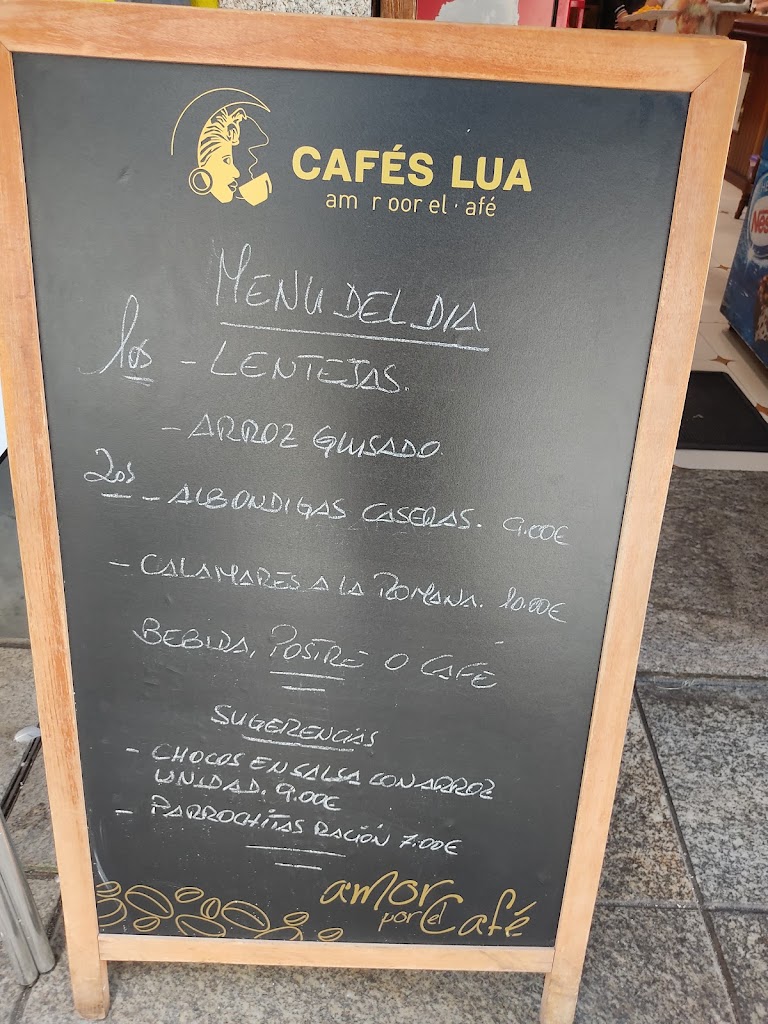 CAFÉS LUA
am r oor el afé
MENU DEL DIA
1os - LENTEJAS.
- ARROZ GUISADO.
2os - ALBONDIGAS CASERAS. 9.00€
- CALAMARES A LA ROMANA. 10.00€
BEBIDA, POSTRE O CAFÉ
SUGERENCIAS
- CHOCOS EN SALSA CON ARROZ
UNIDAD. 9.00€
- PARROCHIÑAS RACIÓN 7.00€
amor
por el Café